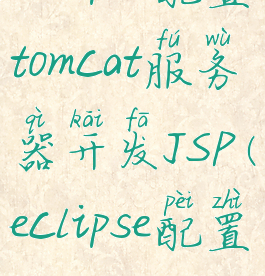 fú wù
tomcat服务
qì kāi fā
器开发JSP(
pèi zhì
eclipse配置